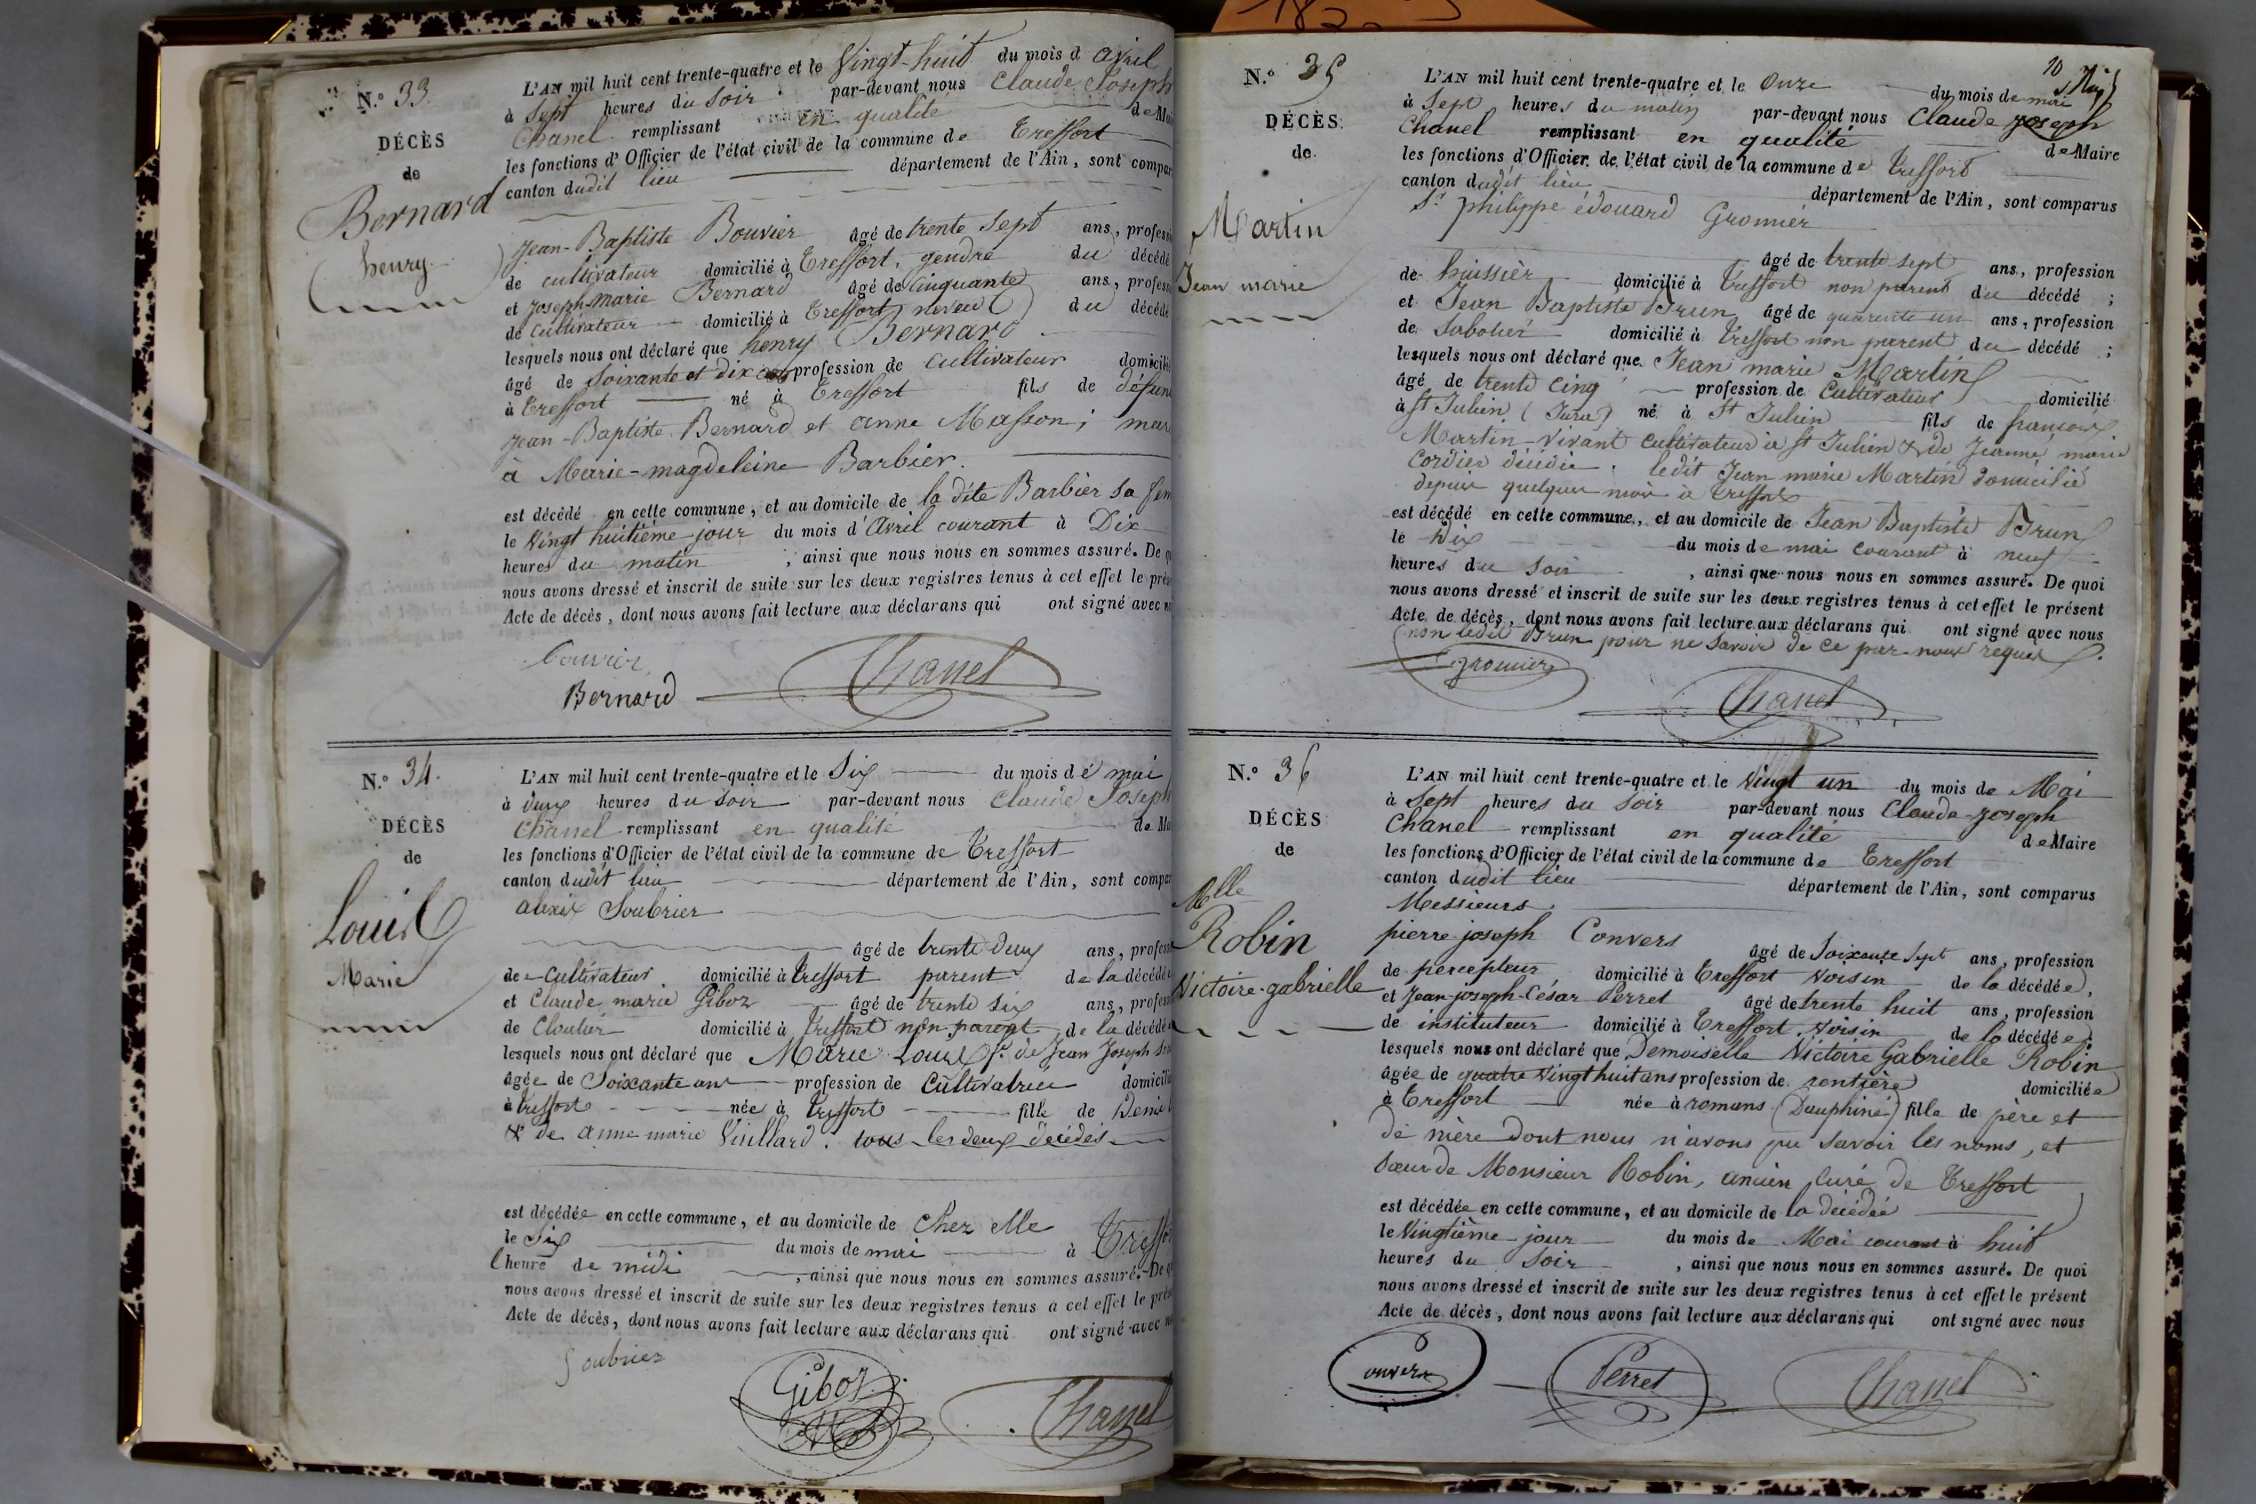 N.° 33.
DÉCÈS
de
Bernard
henry
L'AN mil huit cent trente-quatre et le Vingt-huit du mois d avril
à Sept heures du soir par-devant nous Claude Joseph
Chanel remplissant en qualité de
les fonctions d'Officier de l'état civil de la commune de Treffort
canton dudit lieu département de l'Ain, sont
Jean-Baptiste Bouvier âgé de trente Sept ans,
de cultivateur domicilié à Treffort, gendre du décédé
et Joseph Marie Bernard âgé de Cinquante ans,
de Cultivateur domicilié à Treffort neveu du décédé
lesquels nous ont déclaré que henry Bernard
âgé de Soixante et dix profession de Cultivateur
à Treffort né à Treffort fils de
Jean-Baptiste Bernard et anne Masson;
à Marie-magdeleine Barbier.
est décédé en cette commune, et au domicile de la dite Barbier sa
le Vingt huitième jour du mois d'avril courant à Dix
heures du matin, ainsi que nous nous en sommes assuré. De
nous avons dressé et inscrit de suite sur les deux registres tenus à cet effet le
Acte de décès, dont nous avons fait lecture aux déclarans qui ont signé avec
Bouvier
Bernard Chanel
N.° 34.
DÉCÈS
de
Louis
Marie
L'AN mil huit cent trente-quatre et le Six du mois de mai
à deux heures du soir par-devant nous Claude Joseph
Chanel remplissant en qualité de
les fonctions d'Officier de l'état civil de la commune de Treffort
canton dudit lieu département de l'Ain, sont
alexix Soubrier
âgé de trente deux ans,
de Cultivateur domicilié à Treffort parent de la décédée
et Claude marie Giboz âgé de trente six ans,
de Cloutier domicilié à Treffort non parent de la décédée
lesquels nous ont déclaré que Marie Louis f. de Jean Joseph
âgée de Soixante ans profession de Cultivatrice
à Treffort née à Treffort fille de Denis
& de anne marie Vuillard. tous les deux décédés
est décédée en cette commune, et au domicile de chez elle
le Six du mois de mai à
l'heure de midi, ainsi que nous nous en sommes assuré. De
nous avons dressé et inscrit de suite sur les deux registres tenus à cet effet le
Acte de décès, dont nous avons fait lecture aux déclarans qui ont signé avec
Soubrier
Giboz
Chanel
10
N.° 35
DÉCÈS
de
Martin
Jean marie
L'AN mil huit cent trente-quatre et le Onze du mois de mai
à Sept heures du matin par-devant nous Claude Joseph
Chanel remplissant en qualité de Maire
les fonctions d'Officier de l'état civil de la commune de Treffort
canton dudit lieu département de l'Ain, sont comparus
Sr philippe édouard Gromier
âgé de trente sept ans, profession
de huissier domicilié à Treffort non parent du décédé;
et Jean Baptiste Brun âgé de quarante un ans, profession
de Sabotier domicilié à Treffort non parent du décédé;
lesquels nous ont déclaré que Jean marie Martin
âgé de trente cinq profession de Cultivateur domicilié
à St Julien (Jura) né à St Julien fils de françois
Martin vivant cultivateur à St Julien & de Jeanne marie
Cordier décédée. ledit Jean marie Martin domicilié
depuis quelques mois à Treffort
est décédé en cette commune, et au domicile de Jean Baptiste Brun
le Dix du mois de mai courant à neuf
heures du soir, ainsi que nous nous en sommes assuré. De quoi
nous avons dressé et inscrit de suite sur les deux registres tenus à cet effet le présent
Acte de décès, dont nous avons fait lecture aux déclarans qui ont signé avec nous
non ledit Brun pour ne savoir de ce par nous requis
Gromier
Chanel
N.° 36
DÉCÈS
de
Melle
Robin
Victoire-gabrielle
L'AN mil huit cent trente-quatre et le Vingt un du mois de Mai
à Sept heures du soir par-devant nous Claude-Joseph
Chanel remplissant en qualité de Maire
les fonctions d'Officier de l'état civil de la commune de Treffort
canton dudit lieu département de l'Ain, sont comparus
Messieurs
pierre joseph Convers âgé de Soixante Sept ans, profession
de percepteur domicilié à Treffort voisin de la décédée,
et Jean-joseph-César Perret âgé de trente huit ans, profession
de instituteur domicilié à Treffort Voisin de la décédée;
lesquels nous ont déclaré que Demoiselle Victoire Gabrielle Robin
âgée de quatre Vingt huit ans profession de rentière domiciliée
à Treffort née à romans (Dauphiné) fille de père et
de mère dont nous n'avons pu savoir les noms, et
sœur de Monsieur Robin, ancien Curé de Treffort
est décédée en cette commune, et au domicile de la décédée
le Vingtième jour du mois de Mai courant à huit
heures du soir, ainsi que nous nous en sommes assuré. De quoi
nous avons dressé et inscrit de suite sur les deux registres tenus à cet effet le présent
Acte de décès, dont nous avons fait lecture aux déclarans qui ont signé avec nous
Convers Perret Chanel